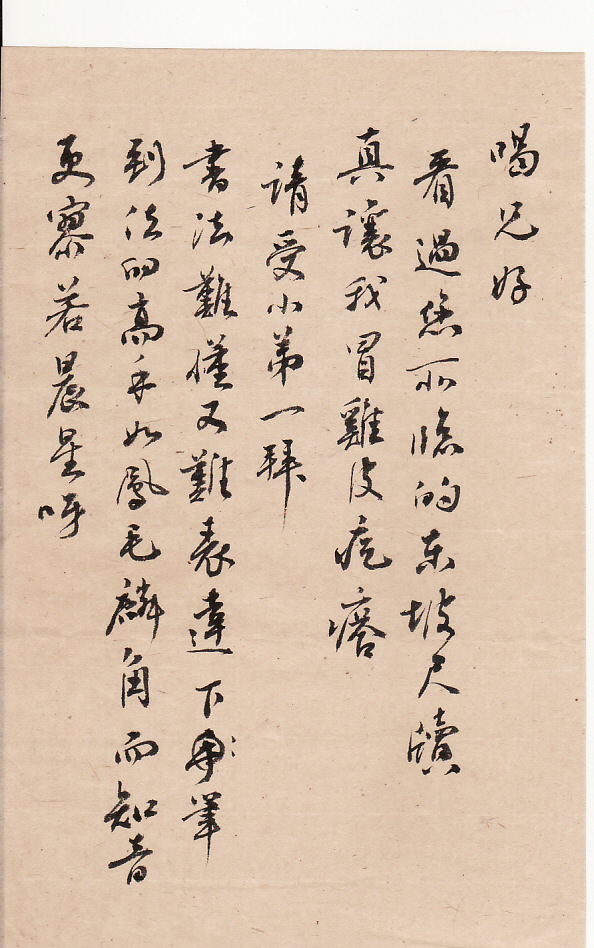 喝兄好
看過您所臨的东坡尺牘
真讓我冒雞皮疙瘩
請受小弟一拜
書法難懂又難表達下筆
到法的高手如鳳毛麟角而知音
更寥若晨星呀